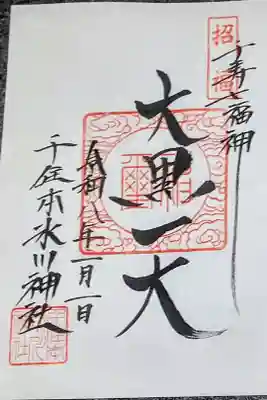 招福
千寿七福神
大黒天
令和八年一月一日
千住本氷川神社